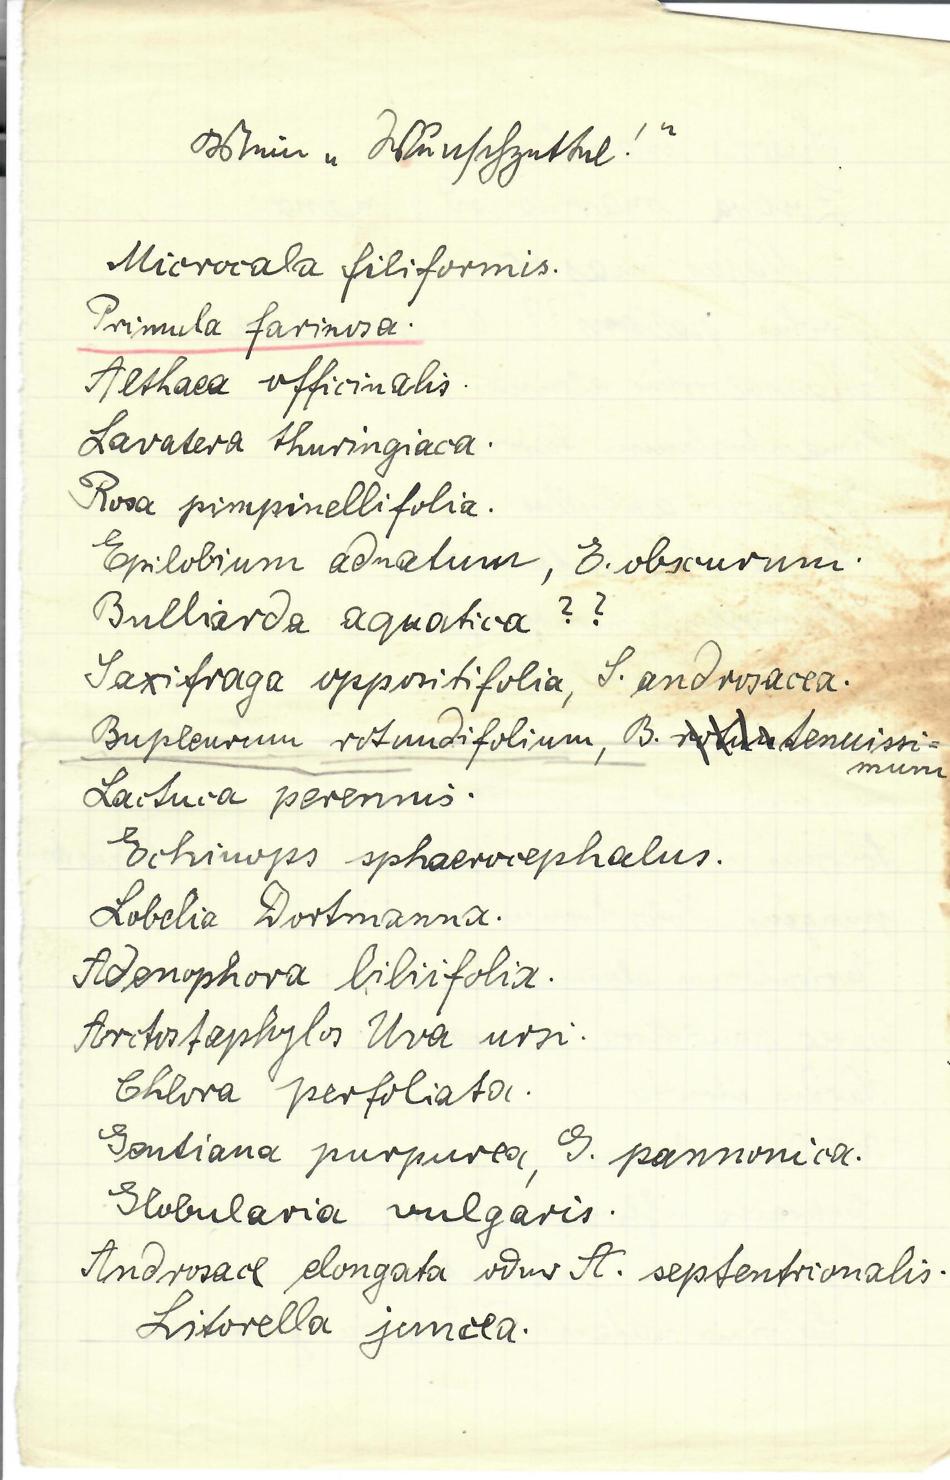 Mein „Wunschzettel!“
Microcala filiformis.
Primula farinosa.
Althaea officinalis.
Lavatera thuringiaca.
Rosa pimpinellifolia.
Epilobium adnatum, E. obscurum.
Bulliarda aquatica ??
Saxifraga oppositifolia, S. androsacea.
Bupleurum rotundifolium, B. tenuissi=
mum
Lactuca perennis.
Echinops sphaerocephalus.
Lobelia Dortmanna.
Adenophora liliifolia.
Arctostaphylos Uva ursi.
Chlora perfoliata.
Gentiana purpurea, G. pannonica.
Globularia vulgaris.
Androsace elongata oder A. septentrionalis.
Litorella juncea.